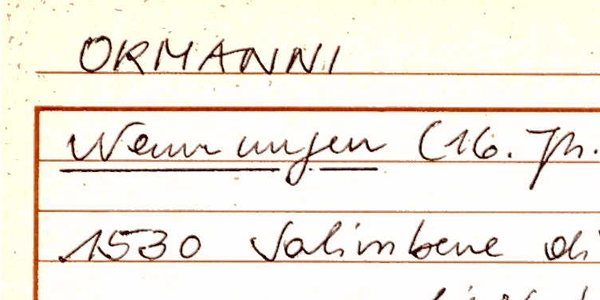 ORMANNI
Nennungen (16. Jh.
1530 Salimbene di